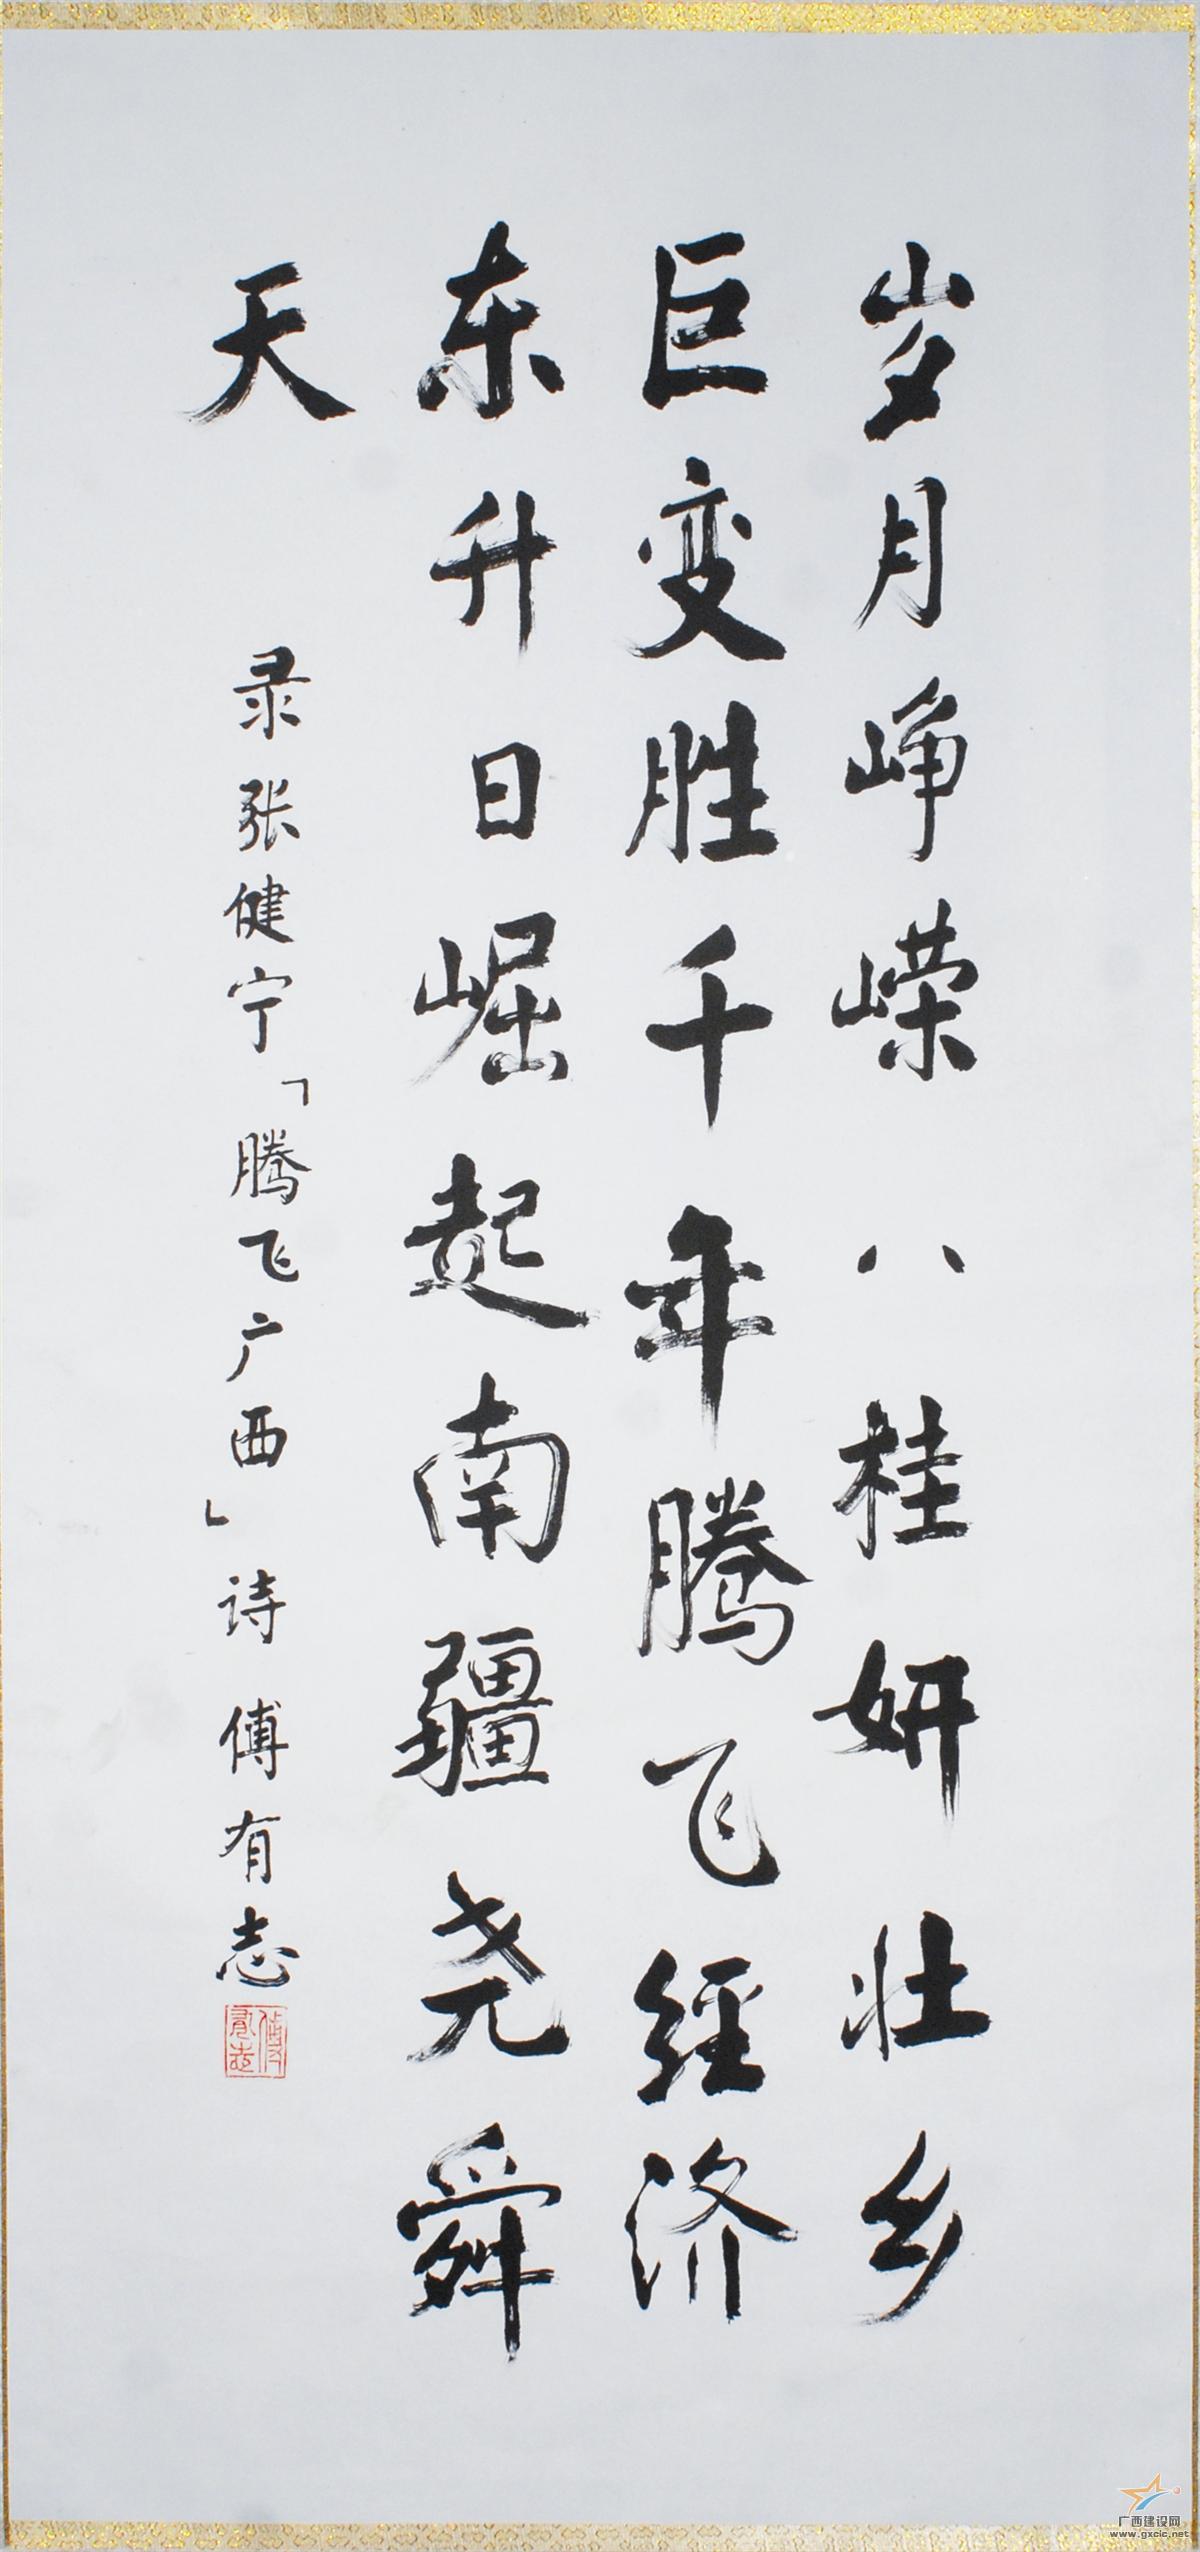 岁月峥嵘八桂妍壮乡
巨变胜千年腾飞经济
东升日崛起南疆尧舜
天
录张健宁「腾飞广西」诗 傅有志
傅有志
广西建设网
www.gxcic.net